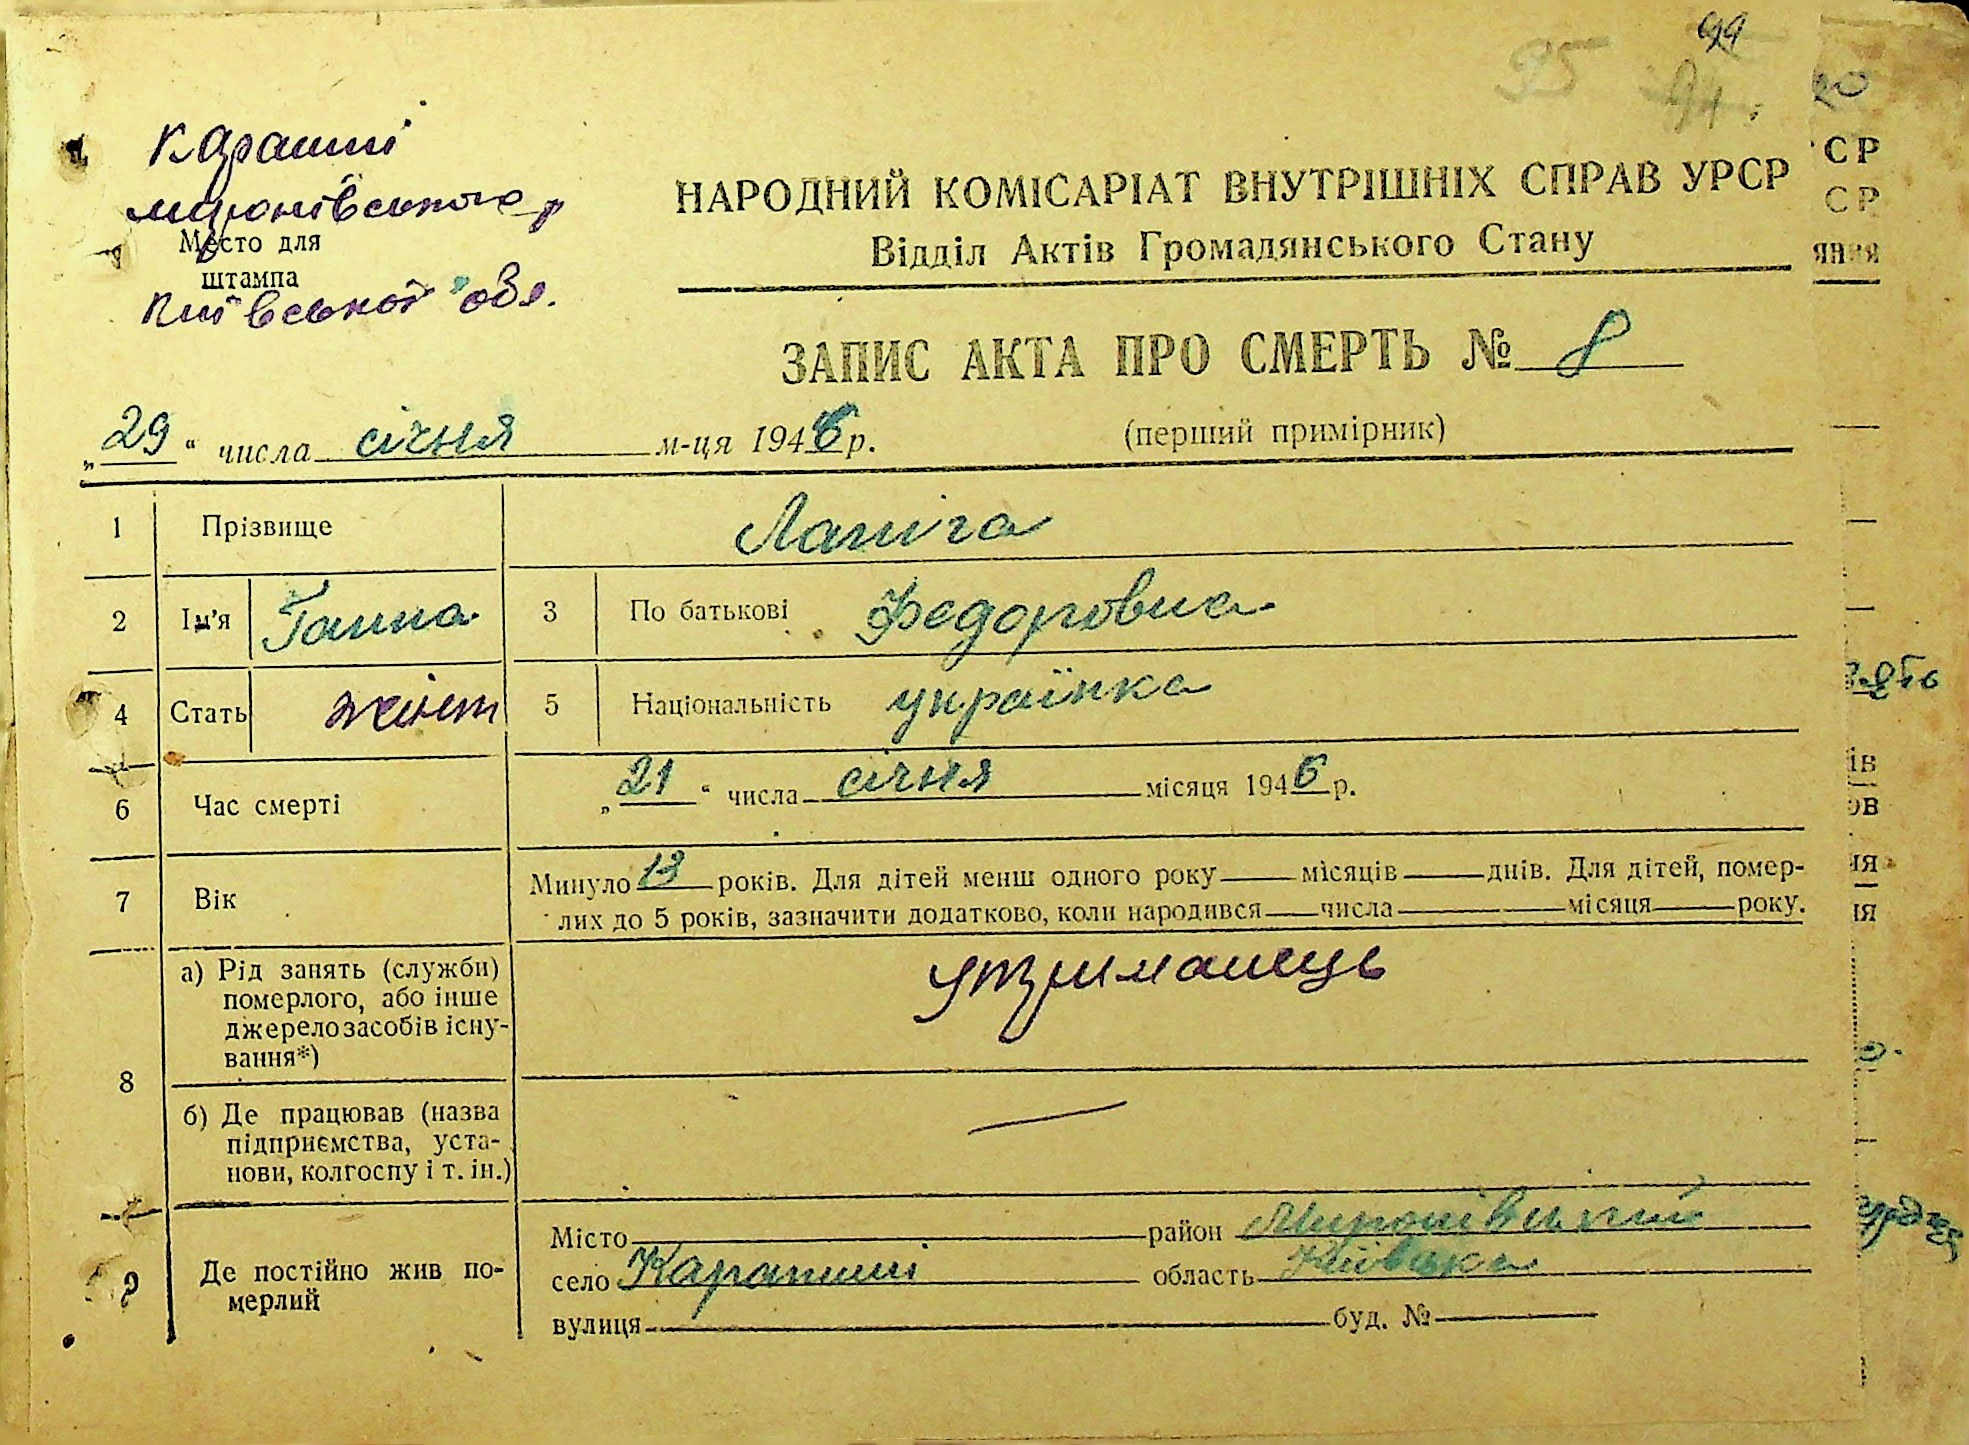 99
95
94
Карапиші
миронівського р
Место для
штампа
Київської обл.
НАРОДНИЙ КОМІСАРІАТ ВНУТРІШНІХ СПРАВ УРСР
Відділ Актів Громадянського Стану
ЗАПИС АКТА ПРО СМЕРТЬ № 8
„29“ числа січня м-ця 1946 р.
(перший примірник)
1 Прізвище Лапіга
2 Ім'я Ганна 3 По батькові Федоровна
4 Стать жіноч 5 Національність українка
6 Час смерті „21“ числа січня місяця 1946 р.
7 Вік Минуло 13 років. Для дітей менш одного року — місяців — днів. Для дітей, помер-
лих до 5 років, зазначити додатково, коли народився — числа — місяця — року.
8 а) Рід занять (служби)
померлого, або інше
джерело засобів існу-
вання*)
утриманець
б) Де працював (назва
підприємства, уста-
нови, колгоспу і т. ін.)
—
9 Де постійно жив по-
мерлий
Місто — район Миронівський
село Карапиші область Київська
вулиця — буд. № —
СР
СР
яния
ів
ов
ня
ія